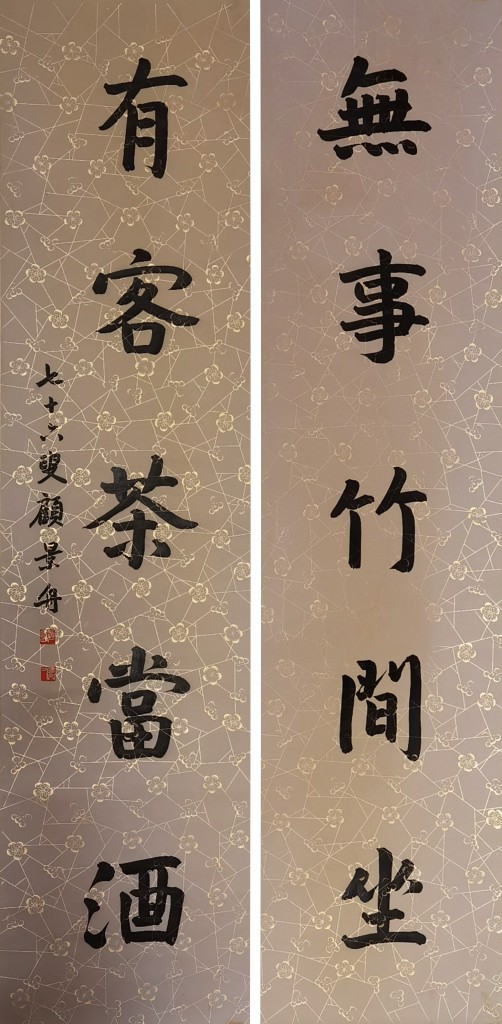 無事竹間坐
有客茶當酒
七十六叟顧景舟